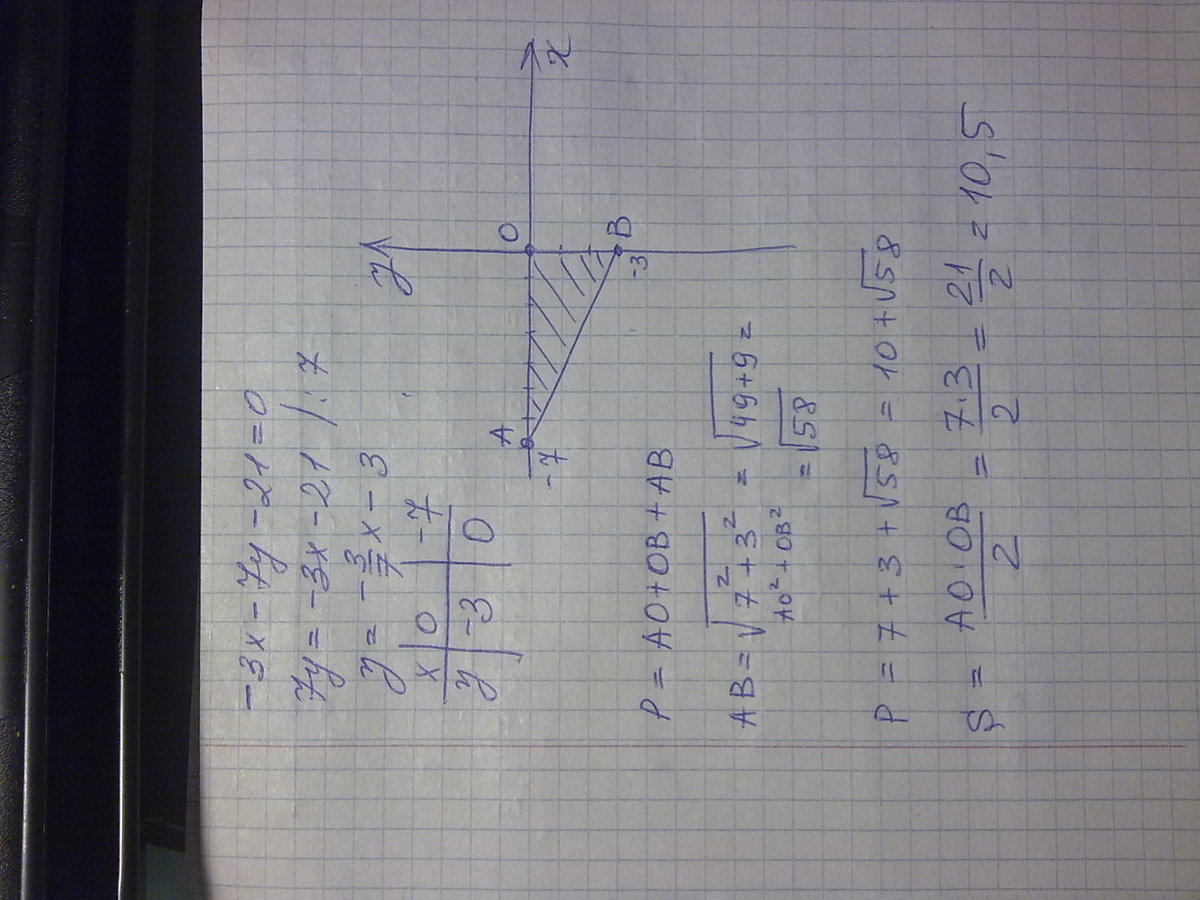 -3x - 7y - 21 = 0
7y = -3x - 21 / : 7
y = -3/7 x - 3
x | 0 | -7
y | -3 | 0
y
A O x
-7
B
-3
P = AO + OB + AB
AB = √(7² + 3²) = √(49 + 9) =
AO² + OB² = √58
P = 7 + 3 + √58 = 10 + √58
S = AO · OB / 2 = 7 · 3 / 2 = 21 / 2 = 10,5